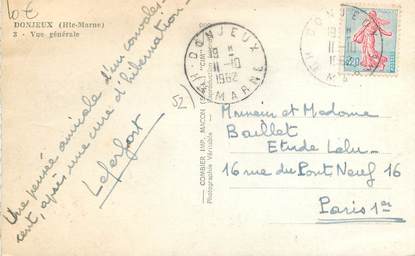 10€
DONJEUX (Hte-Marne)
3 - Vue générale
Une pensée amicale d'un convales-
cent, après une cure d'hibernation -
Leforfort
52
COMBIER IMP. MACON "CIM"
Photographie Véritable
DONJEUX
19 H
11-10
1962
Hte MARNE
DONJE
19 H
11-10
19
MARNE
0,20
Monsieur et Madame
Baillet
Etude Lalu
16 rue du Pont Neuf 16
Paris 1er